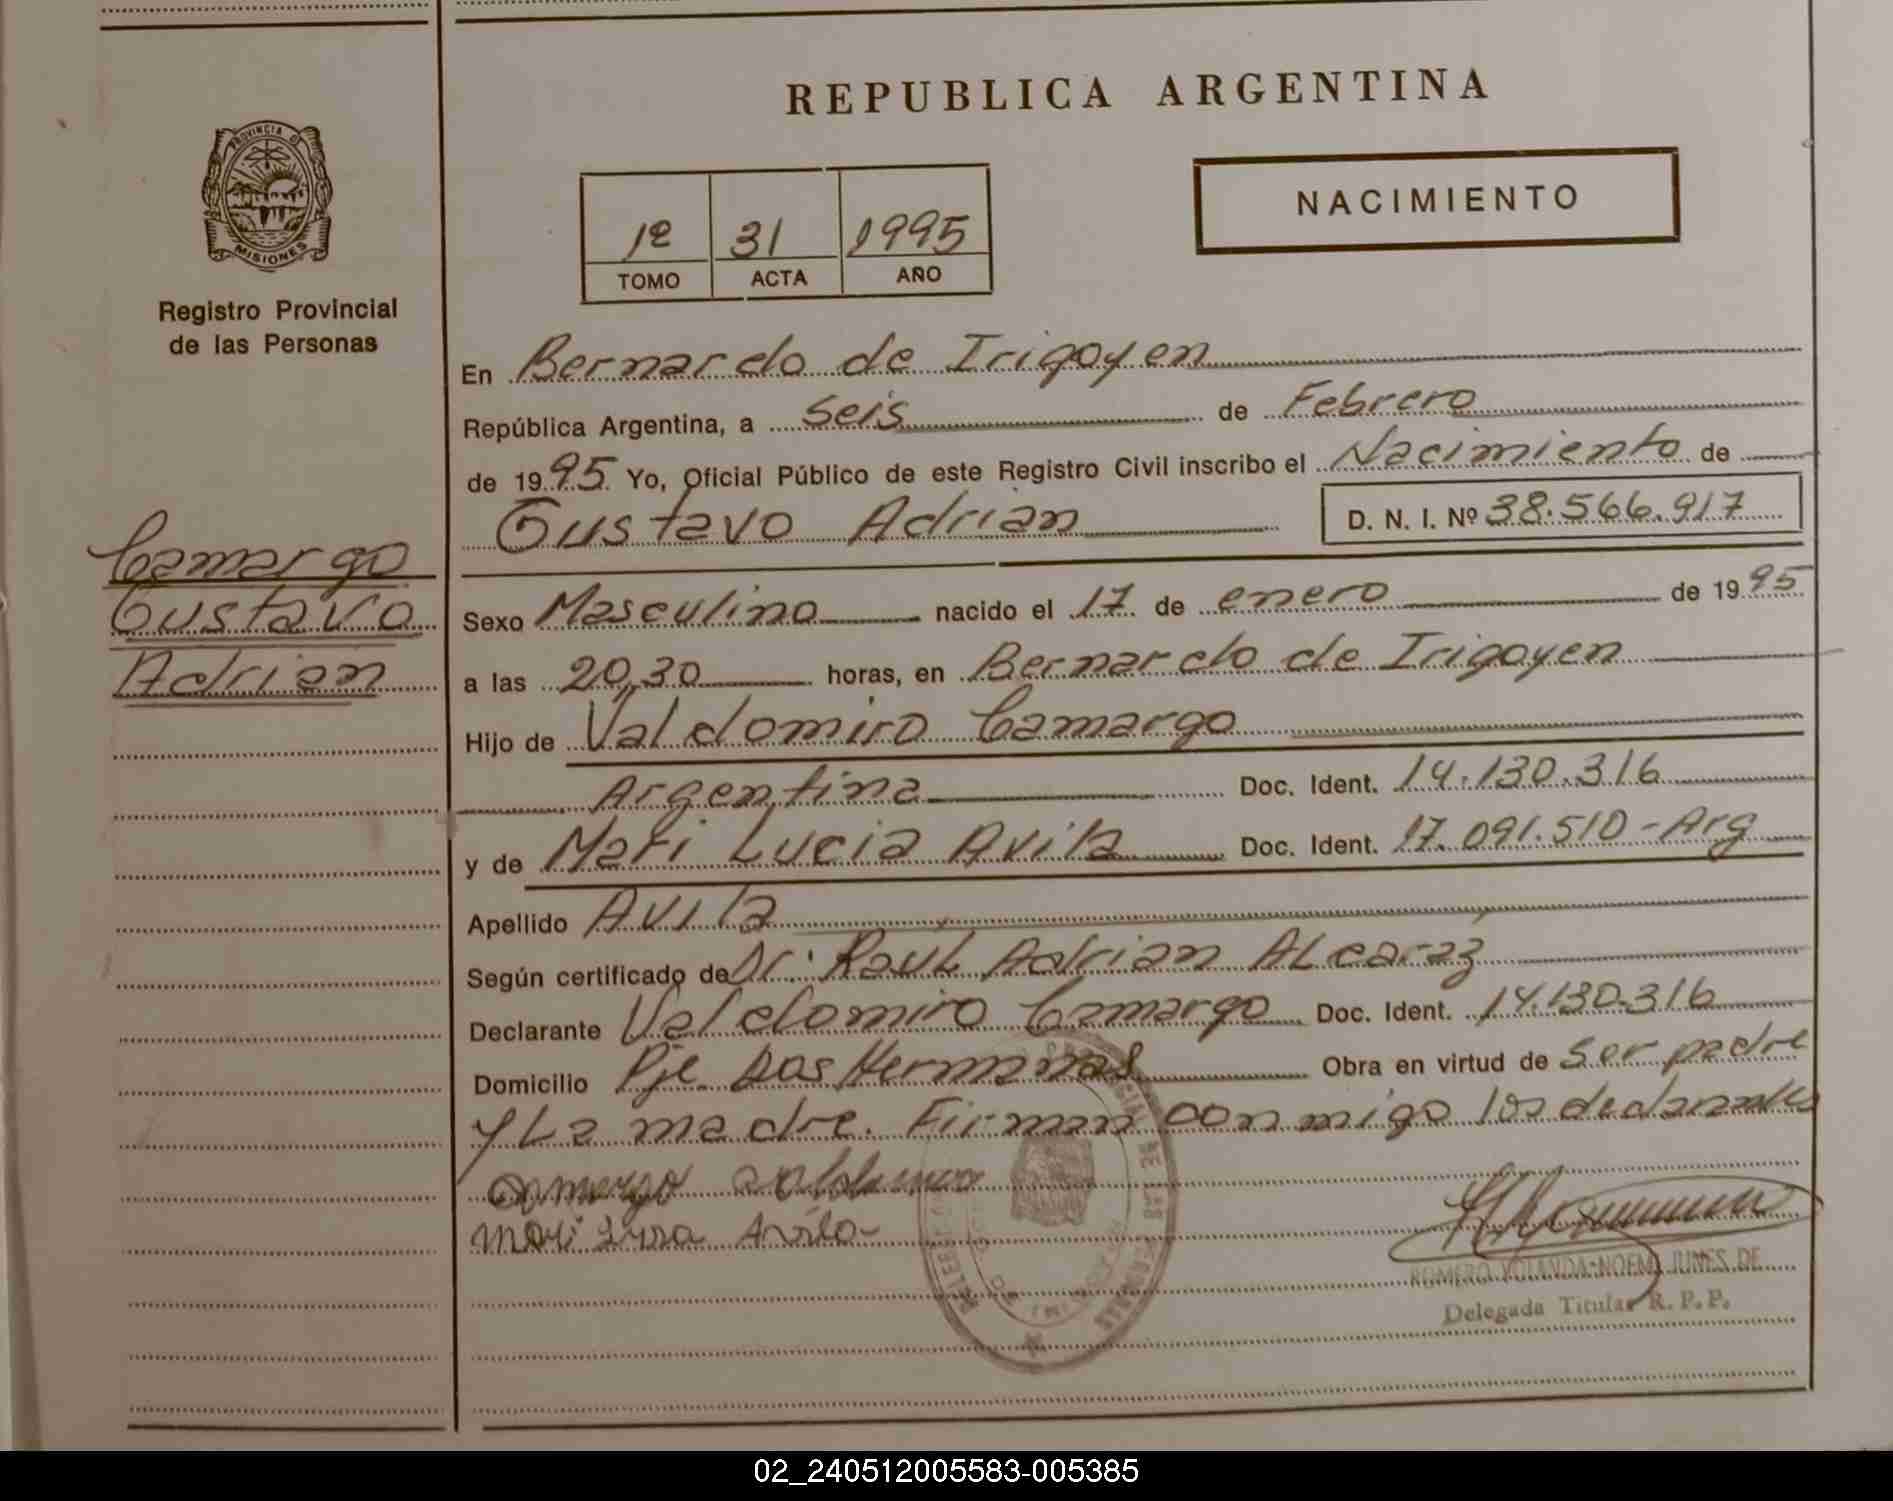 REPUBLICA ARGENTINA
PROVINCIA DE
MISIONES
Registro Provincial
de las Personas
NACIMIENTO
1º 31 1995
TOMO ACTA AÑO
En Bernardo de Irigoyen
República Argentina, a Seis de Febrero
de 1995 Yo, Oficial Público de este Registro Civil inscribo el Nacimiento de
Gustavo Adrian D. N. I. Nº 38.566.917
Camargo
Gustavo
Adrian
Sexo Masculino nacido el 17 de enero de 1995
a las 20,30 horas, en Bernardo de Irigoyen
Hijo de Valdomiro Camargo
Argentina Doc. Ident. 14.130.316
y de Mari Lucia Avila Doc. Ident. 17.091.510-Arg
Apellido Avila
Según certificado de Dr. Raúl Adrian ALcaráz
Declarante Valdomiro Camargo Doc. Ident. 14.130.316
Domicilio Pje Dos Hermanas Obra en virtud de ser padre
y La madre. Firman conmigo los
Camargo
Mari Avila
ROMERO YOLANDA NOEMI JUNES DE
Delegada Titular R. P. P.
DE LAS PERSONAS
02_240512005583-005385